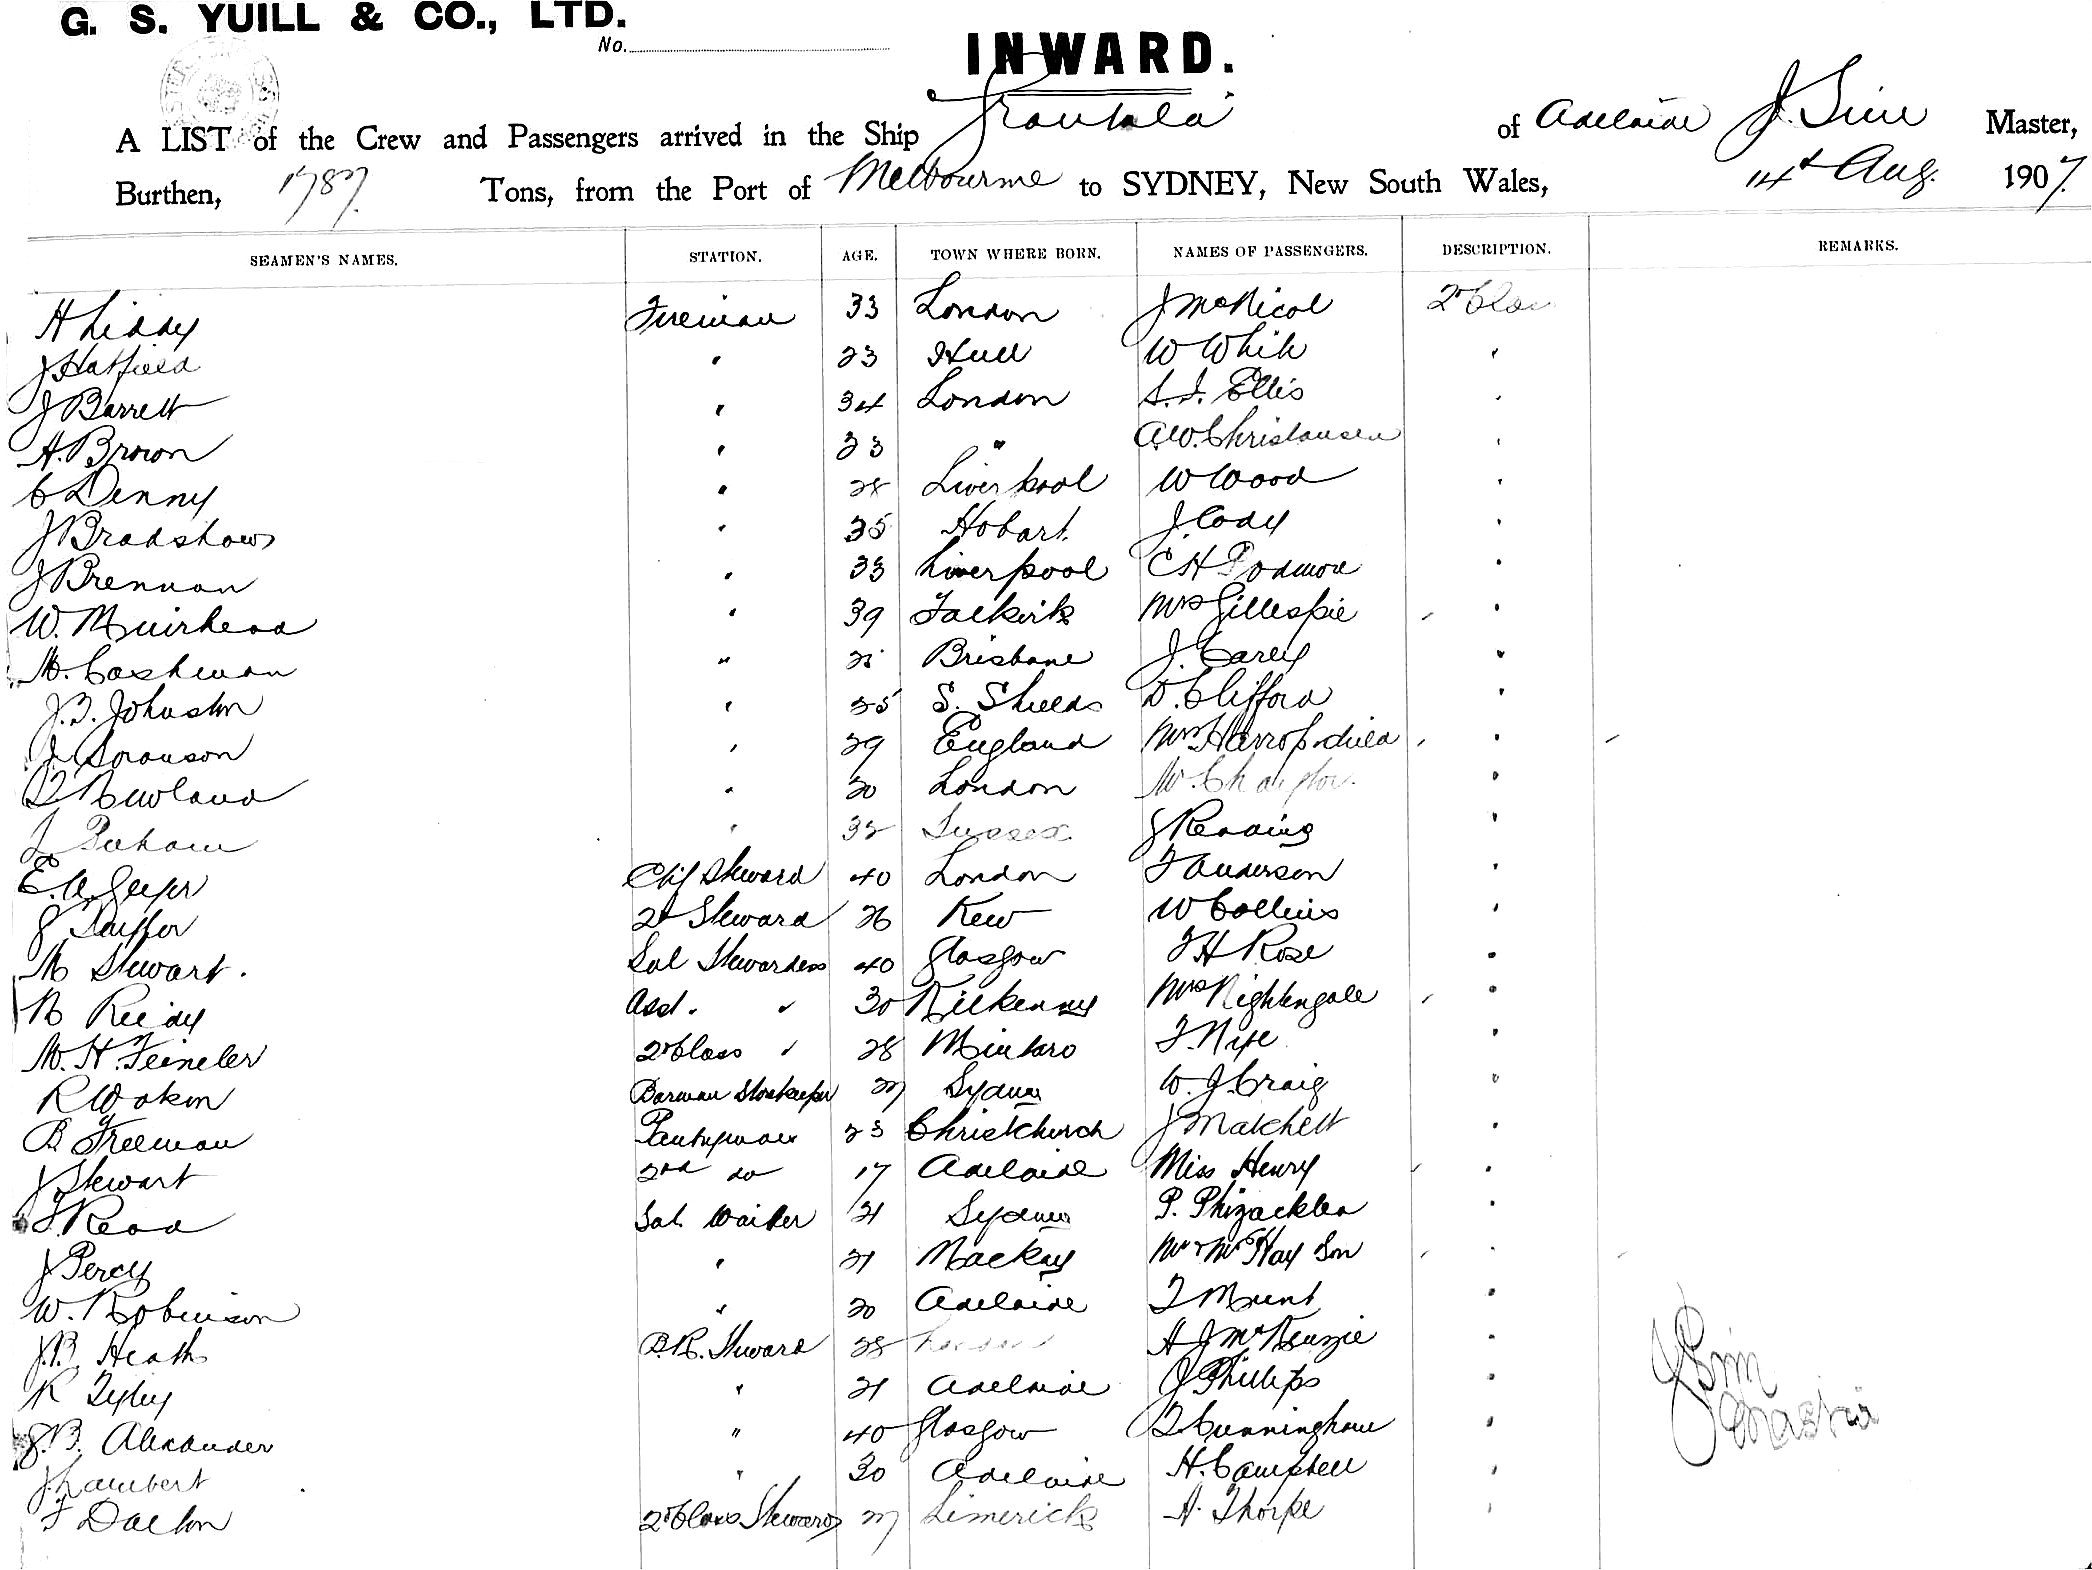 G. S. YUILL & CO., LTD.
No.
INWARD.
A LIST of the Crew and Passengers arrived in the Ship Grantala of Adelaide J. Sim Master,
Burthen, 1787 Tons, from the Port of Melbourne to SYDNEY, New South Wales, 14th Aug. 1907.
SEAMEN'S NAMES. STATION. AGE. TOWN WHERE BORN. NAMES OF PASSENGERS. DESCRIPTION. REMARKS.
H Liddy Fireman 33 London J McNicol 2d Class
J Hatfield " 23 Hull W White "
J Barrett " 34 London S. J. Ellis "
A. Brown " 23 " A.W. Christausen "
C Denny " 28 Liverpool W Wood "
J Bradshaw " 35 Hobart J. Cody "
J Brennan " 33 Liverpool C H Podmore "
W. Muirhead " 39 Falkirk Mrs Gillespie "
M. Cashman " Brisbane J. Carey "
J. Johnston " 25 S. Shields D. Clifford "
J. Soranson " 29 England Mrs Harrop child "
Newland " 20 London "
J Pelham " 32 Sussex J Reading "
E. A. Geyer Chf Steward 40 London F Anderson "
2d Steward 26 Kew W Collins "
M Stewart. Sal Stewardess 40 Glasgow F H Rose "
N Reidy Asst. " 30 Kilkenny Mrs Nightengale "
M. H. Feineler 2d Class " 28 Mintaro F. Nixe "
R Barman Storekeeper 27 Sydney W. J. Craig "
B Freeman Pantryman 23 Christchurch J Matchett "
J Stewart 2nd do 17 Adelaide Miss Henry "
F. Read Sal. Waiter 21 Sydney P. Phizacklea "
J Percy " 21 Mackay Mr & Mrs Hay Son "
W. Robinson " 20 Adelaide F Munt "
J.B. Heath B.R. Steward 28 London H J McKenzie "
R " 21 Adelaide J Phillips "
J.B. Alexander " 40 Glasgow T Cunningham "
J. Lambert " 30 Adelaide H. Campbell "
F Dalton 2d Class Steward 27 Limerick A. Thorpe "
J Sim
Master